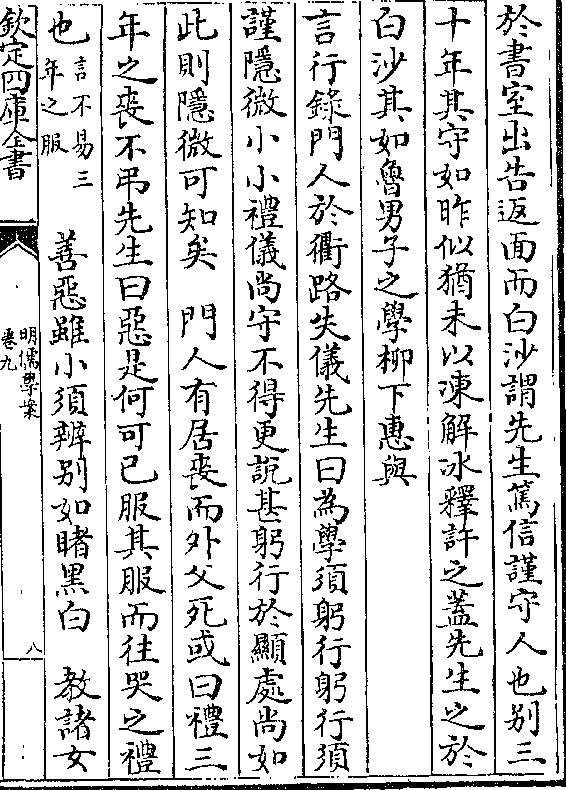 於書室出告返面而白沙謂先生篤信謹守人也别三
十年其守如昨似猶未以凍解冰釋許之蓋先生之於
白沙其如魯男子之學柳下惠與
言行錄門人於衢路失儀先生曰為學須躬行躬行須
謹隱微小小禮儀尚守不得更説甚躬行於顯處尚如
此則隱微可知矣　門人有居喪而外父死或曰禮三
年之喪不弔先生曰惡是何可已服其服而往哭之禮
也言不易三年之服　善惡雖小須辨别如睹黑白　教諸女
欽定四庫全書
明儒學案
卷九
八